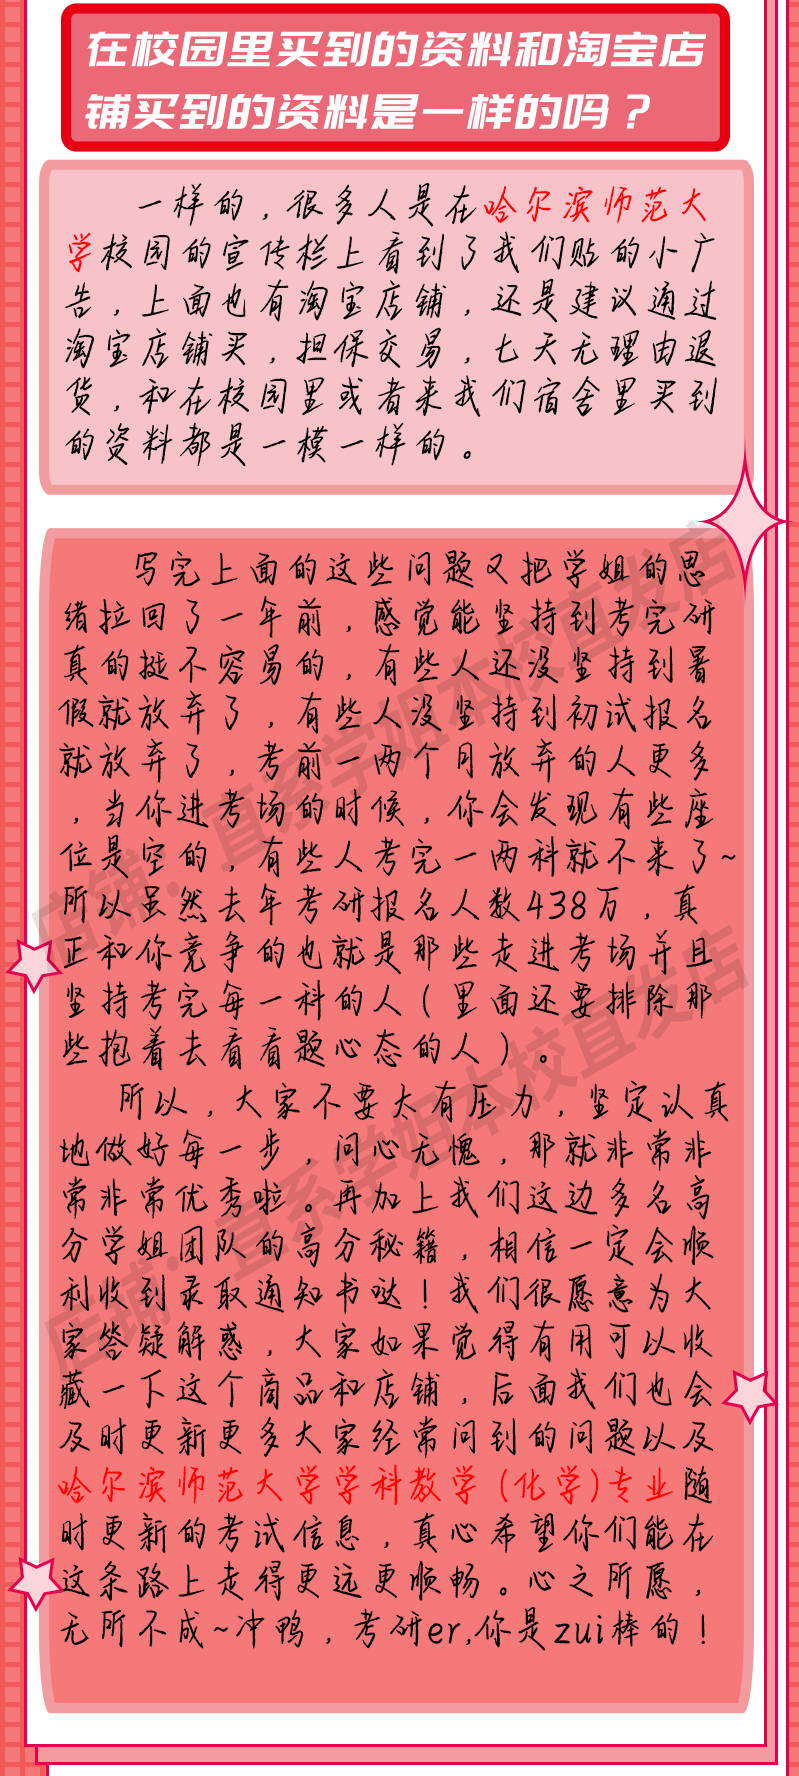 在校园里买到的资料和淘宝店
铺买到的资料是一样的吗？
一样的，很多人是在哈尔滨师范大
学校园的宣传栏上看到了我们贴的小广
告，上面也有淘宝店铺，还是建议通过
淘宝店铺买，担保交易，七天无理由退
货，和在校园里或者来我们宿舍里买到
的资料都是一模一样的。
写完上面的这些问题又把学姐的思
绪拉回了一年前，感觉能坚持到考完研
真的挺不容易的，有些人还没坚持到暑
假就放弃了，有些人没坚持到初试报名
就放弃了，考前一两个月放弃的人更多
，当你进考场的时候，你会发现有些座
位是空的，有些人考完一两科就不来了~
所以虽然去年考研报名人数438万，真
正和你竞争的也就是那些走进考场并且
坚持考完每一科的人（里面还要排除那
些抱着去看看题心态的人）。
所以，大家不要太有压力，坚定认真
地做好每一步，问心无愧，那就非常非
常非常优秀啦。再加上我们这边多名高
分学姐团队的高分秘籍，相信一定会顺
利收到录取通知书哒！我们很愿意为大
家答疑解惑，大家如果觉得有用可以收
藏一下这个商品和店铺，后面我们也会
及时更新更多大家经常问到的问题以及
哈尔滨师范大学学科教学(化学)专业随
时更新的考试信息，真心希望你们能在
这条路上走得更远更顺畅。心之所愿，
无所不成~冲鸭，考研er,你是zui棒的！
店铺：直系学姐本校直发店
店铺：直系学姐本校直发店